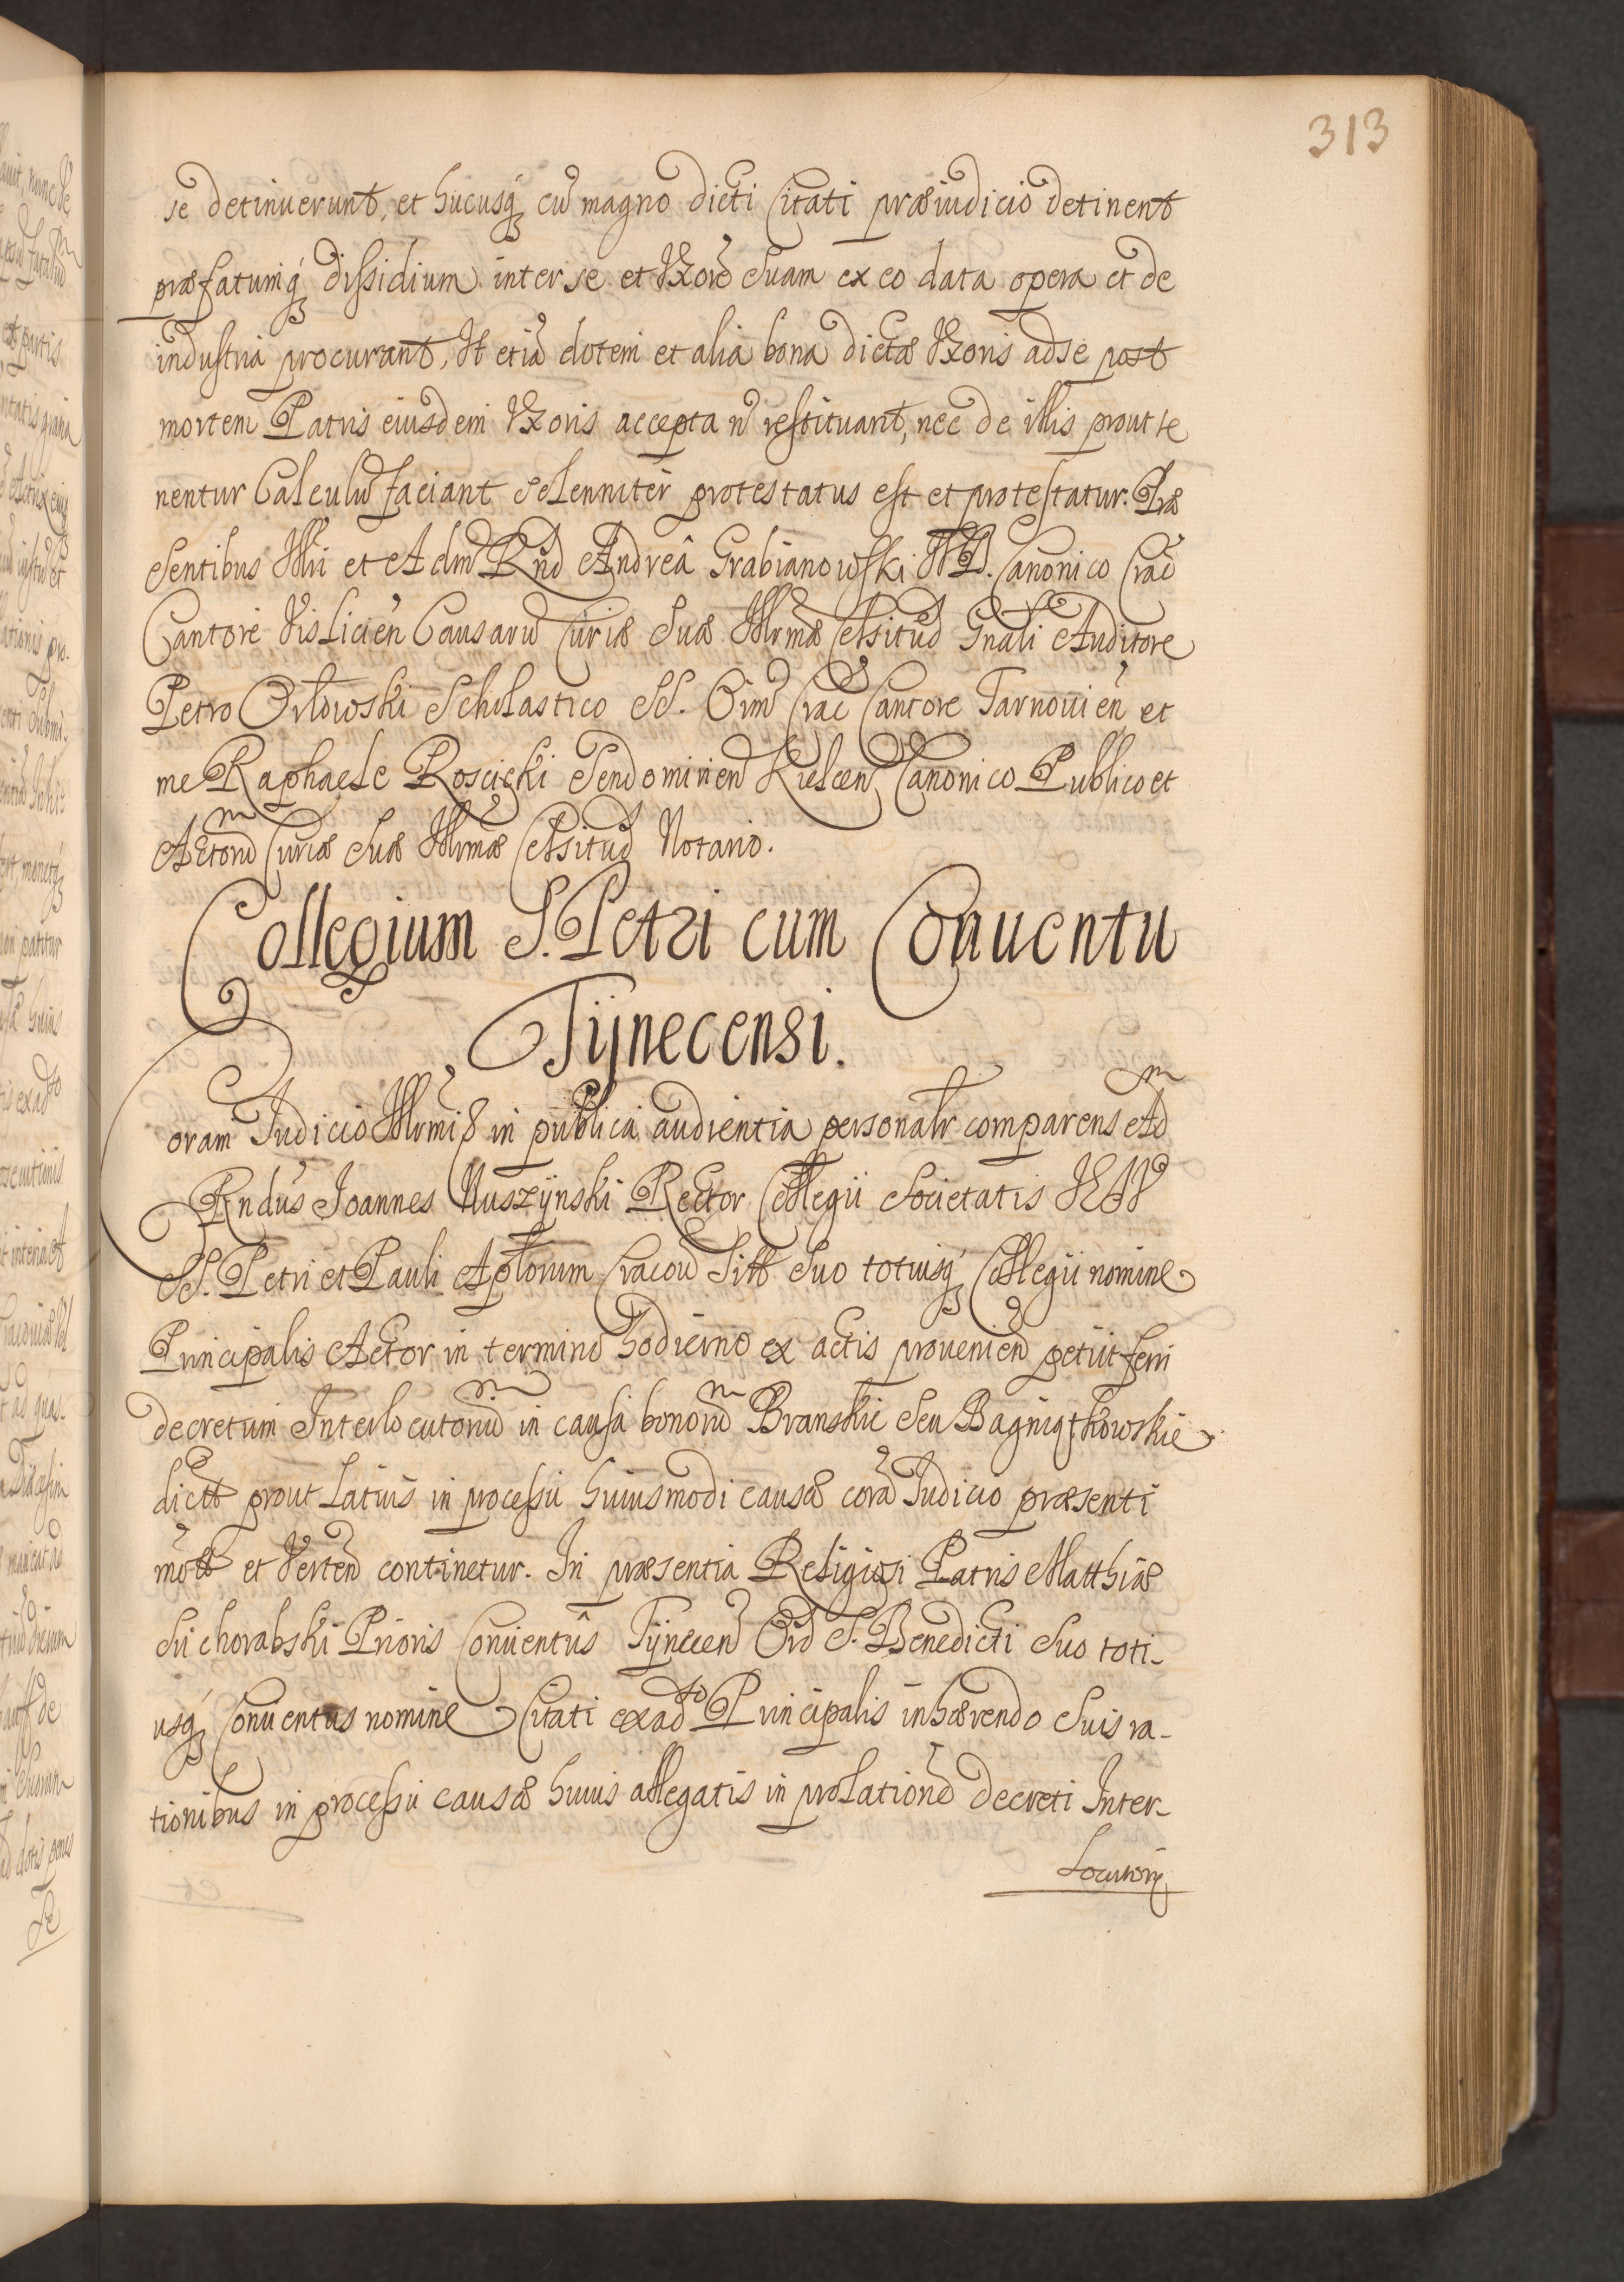 313
se detinuerunt, et hucusq₃ cũ magno dicti Citati præiudicio detinent
præfatumq₃ dissidium inter se et Vxorẽ Suam ex eo data opera et de
industria procurant, Vt etiã dotem et alia bona dictæ Vxoris ad se post
mortem Patris eiusdem Vxoris accepta ñ restituant, nec de illis prout te
nentur Calculũ faciant Solenniter protestatus est et protestatur. Præ
Sentibus Illri et Adm̃ Rñd Andreâ Grabianowski V.I.D. Canonico Crac̃
Cantore Vislicieñ Causarũ Curiæ Suæ Illrmæ Celsitud Gnali Auditore
Petro Orłowski Scholastico SS. Oim̃ Crac̃ Cantore Tarnouieñ et
me Raphaele Roscicki Sendomirieñ Kielceñ Canonico Publico et
Actorũ Curiæ Suæ Illrmæ Celsitud Notario.
Collegium S. Petri cum Conuentu
Tÿnecensi.
Coram Iudicio Illrmi & in publica audientia personalr comparens Ad
Rndus Joannes Muszÿnski Rector Collegii Societatis IESV
SS. Petri et Pauli Aplorum Cracoũ Sitt Suo totiusq₃ Collegii nomine
Principalis Actor in termino hodierno ex actis prouenieñ petiit ferri
decretum Interlocutoriũ in causa bonorũ Branskie Seu Bagniątkowskie
dictt prout Latius in processu huiusmodi causæ corã Iudicio præsenti
mott et Verteñ continetur. In præsentia Religiosi Patris Matthiæ
Suchorabski Prioris Conuentûs Tÿneceñ Ord S. Benedicti Suo toti-
usq₃ Conuentus nomine Citati ex ad^so Principalis inhærendo Suis ra-
tionibus in processu causæ huius allegatis in prolationẽ decreti Inter-
Locutorii